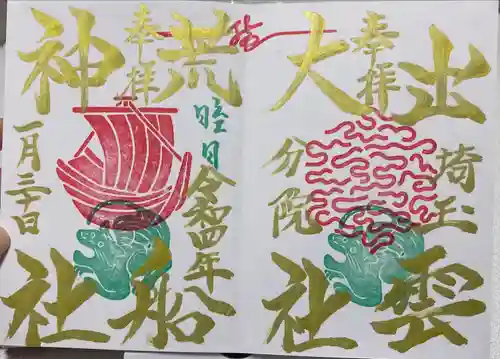 出雲
埼玉
奉拝
大社
分院
荒船
睦月
令和四年
奉拝
神社
一月三十日